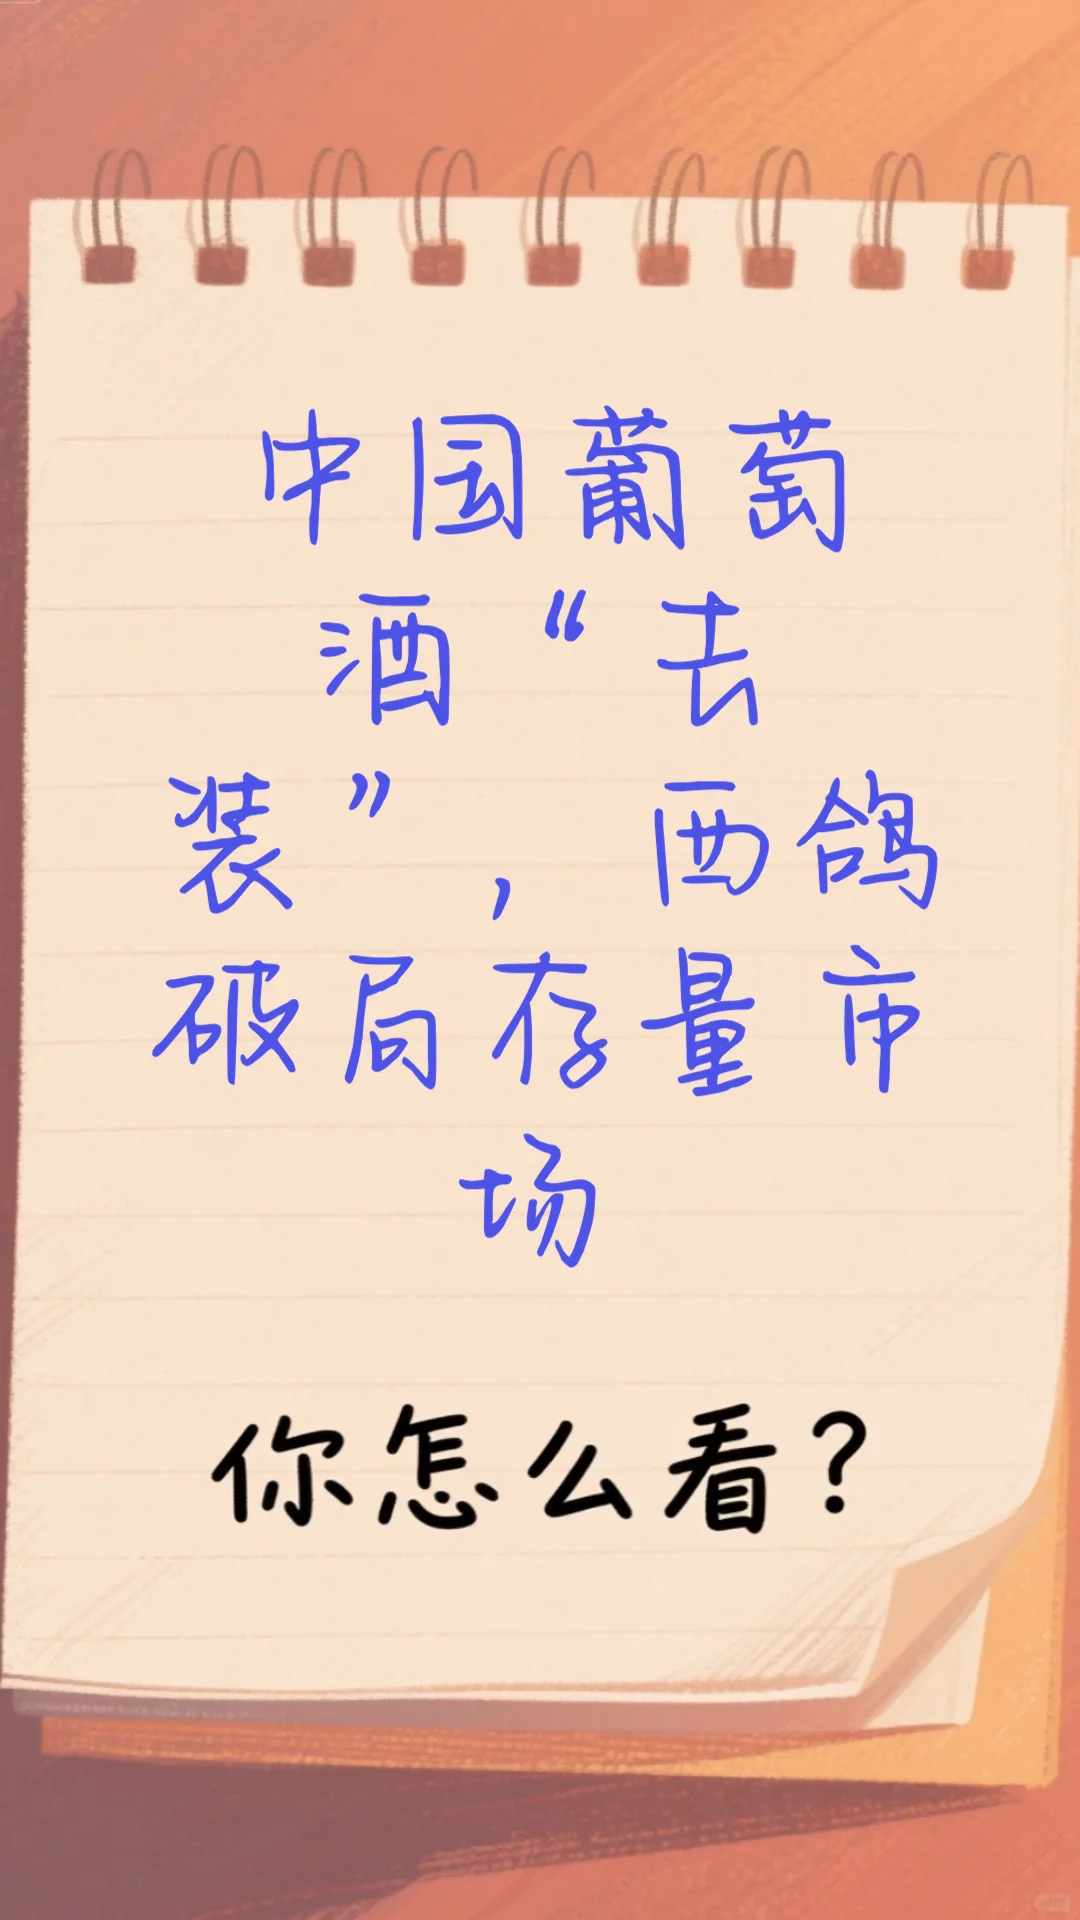 中国葡萄
酒“去
装”，西鸽
破局存量市
场
你怎么看？